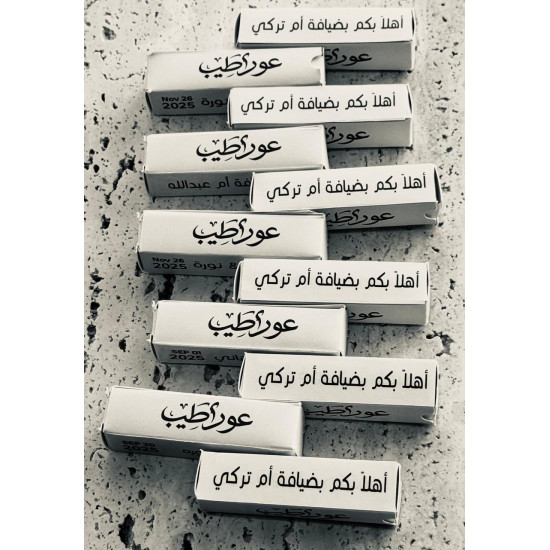 أهلاً بكم بضيافة أم تركي
عود وطيب
Nov 26
2025
نورة
أهلاً بكم بضيافة أم تركي
عود وطيب
أم عبدالله
أهلاً بكم بضيافة أم تركي
عود وطيب
Nov 26
2025
نورة
أهلاً بكم بضيافة أم تركي
عود وطيب
SEP 01
2025
أهلاً بكم بضيافة أم تركي
عود وطيب
أهلاً بكم بضيافة أم تركي